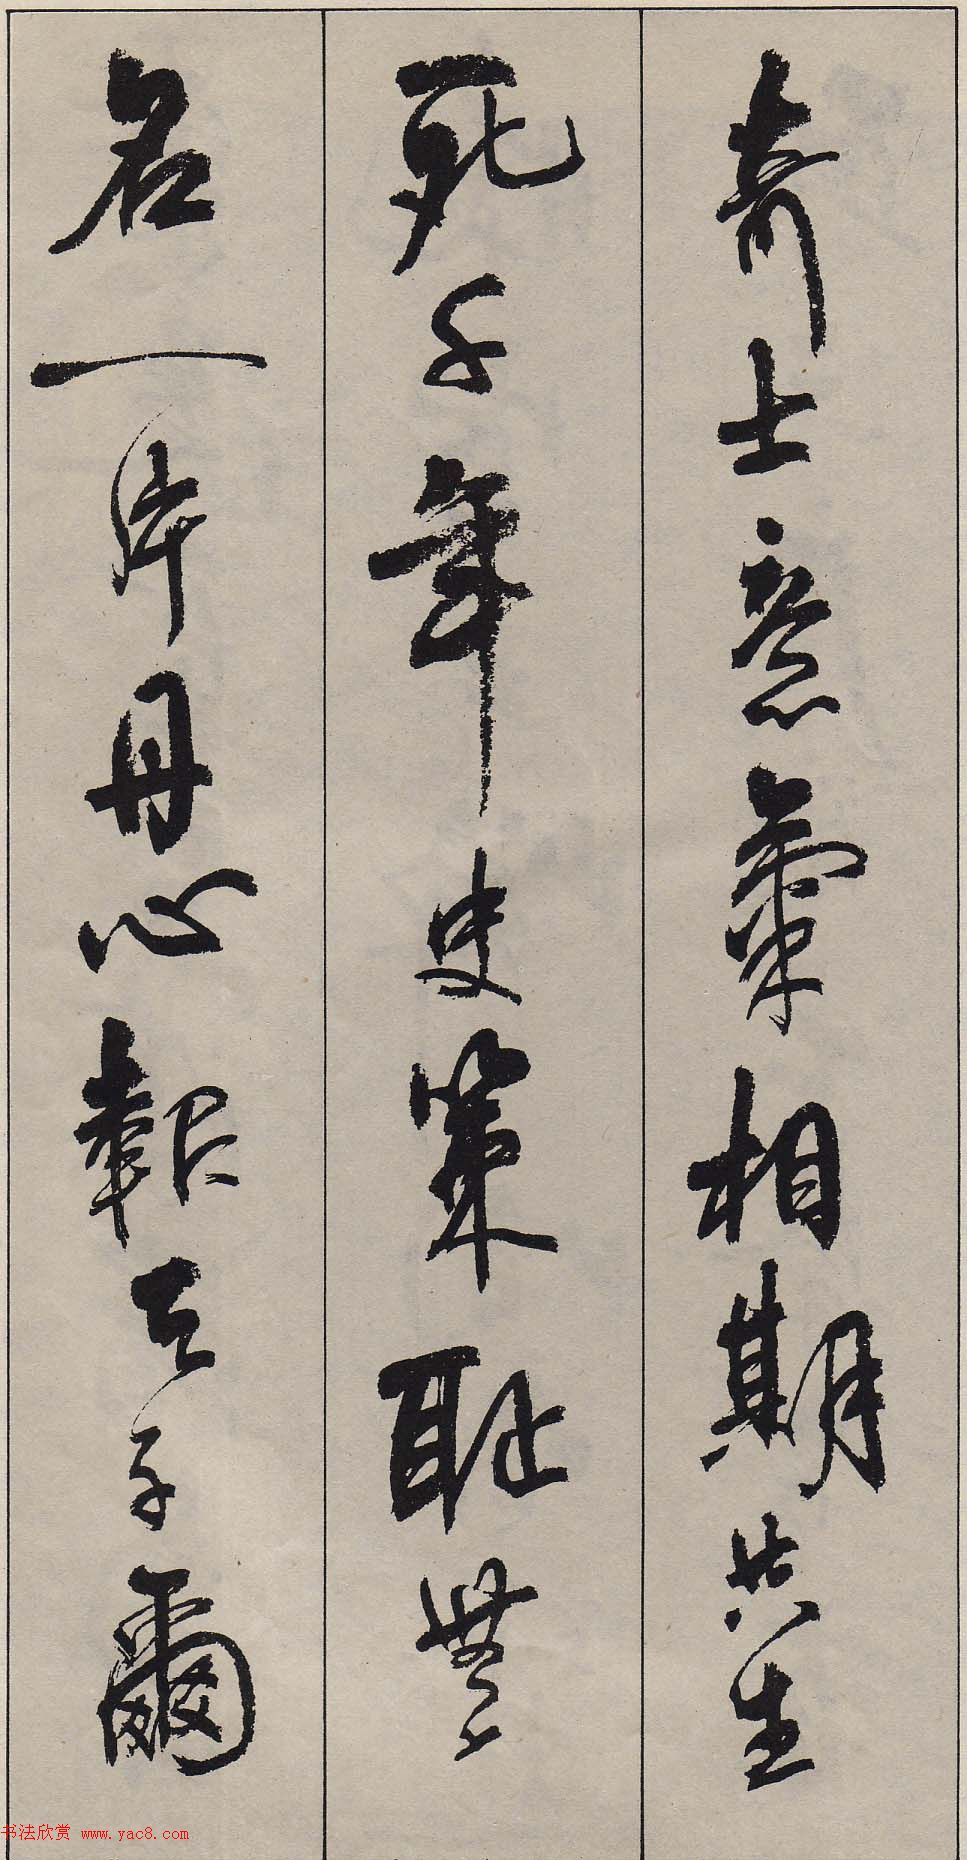 奇士意氣相期共生
死千年史策耻無
名一片丹心報天子爾
书法欣赏 www.yac8.com